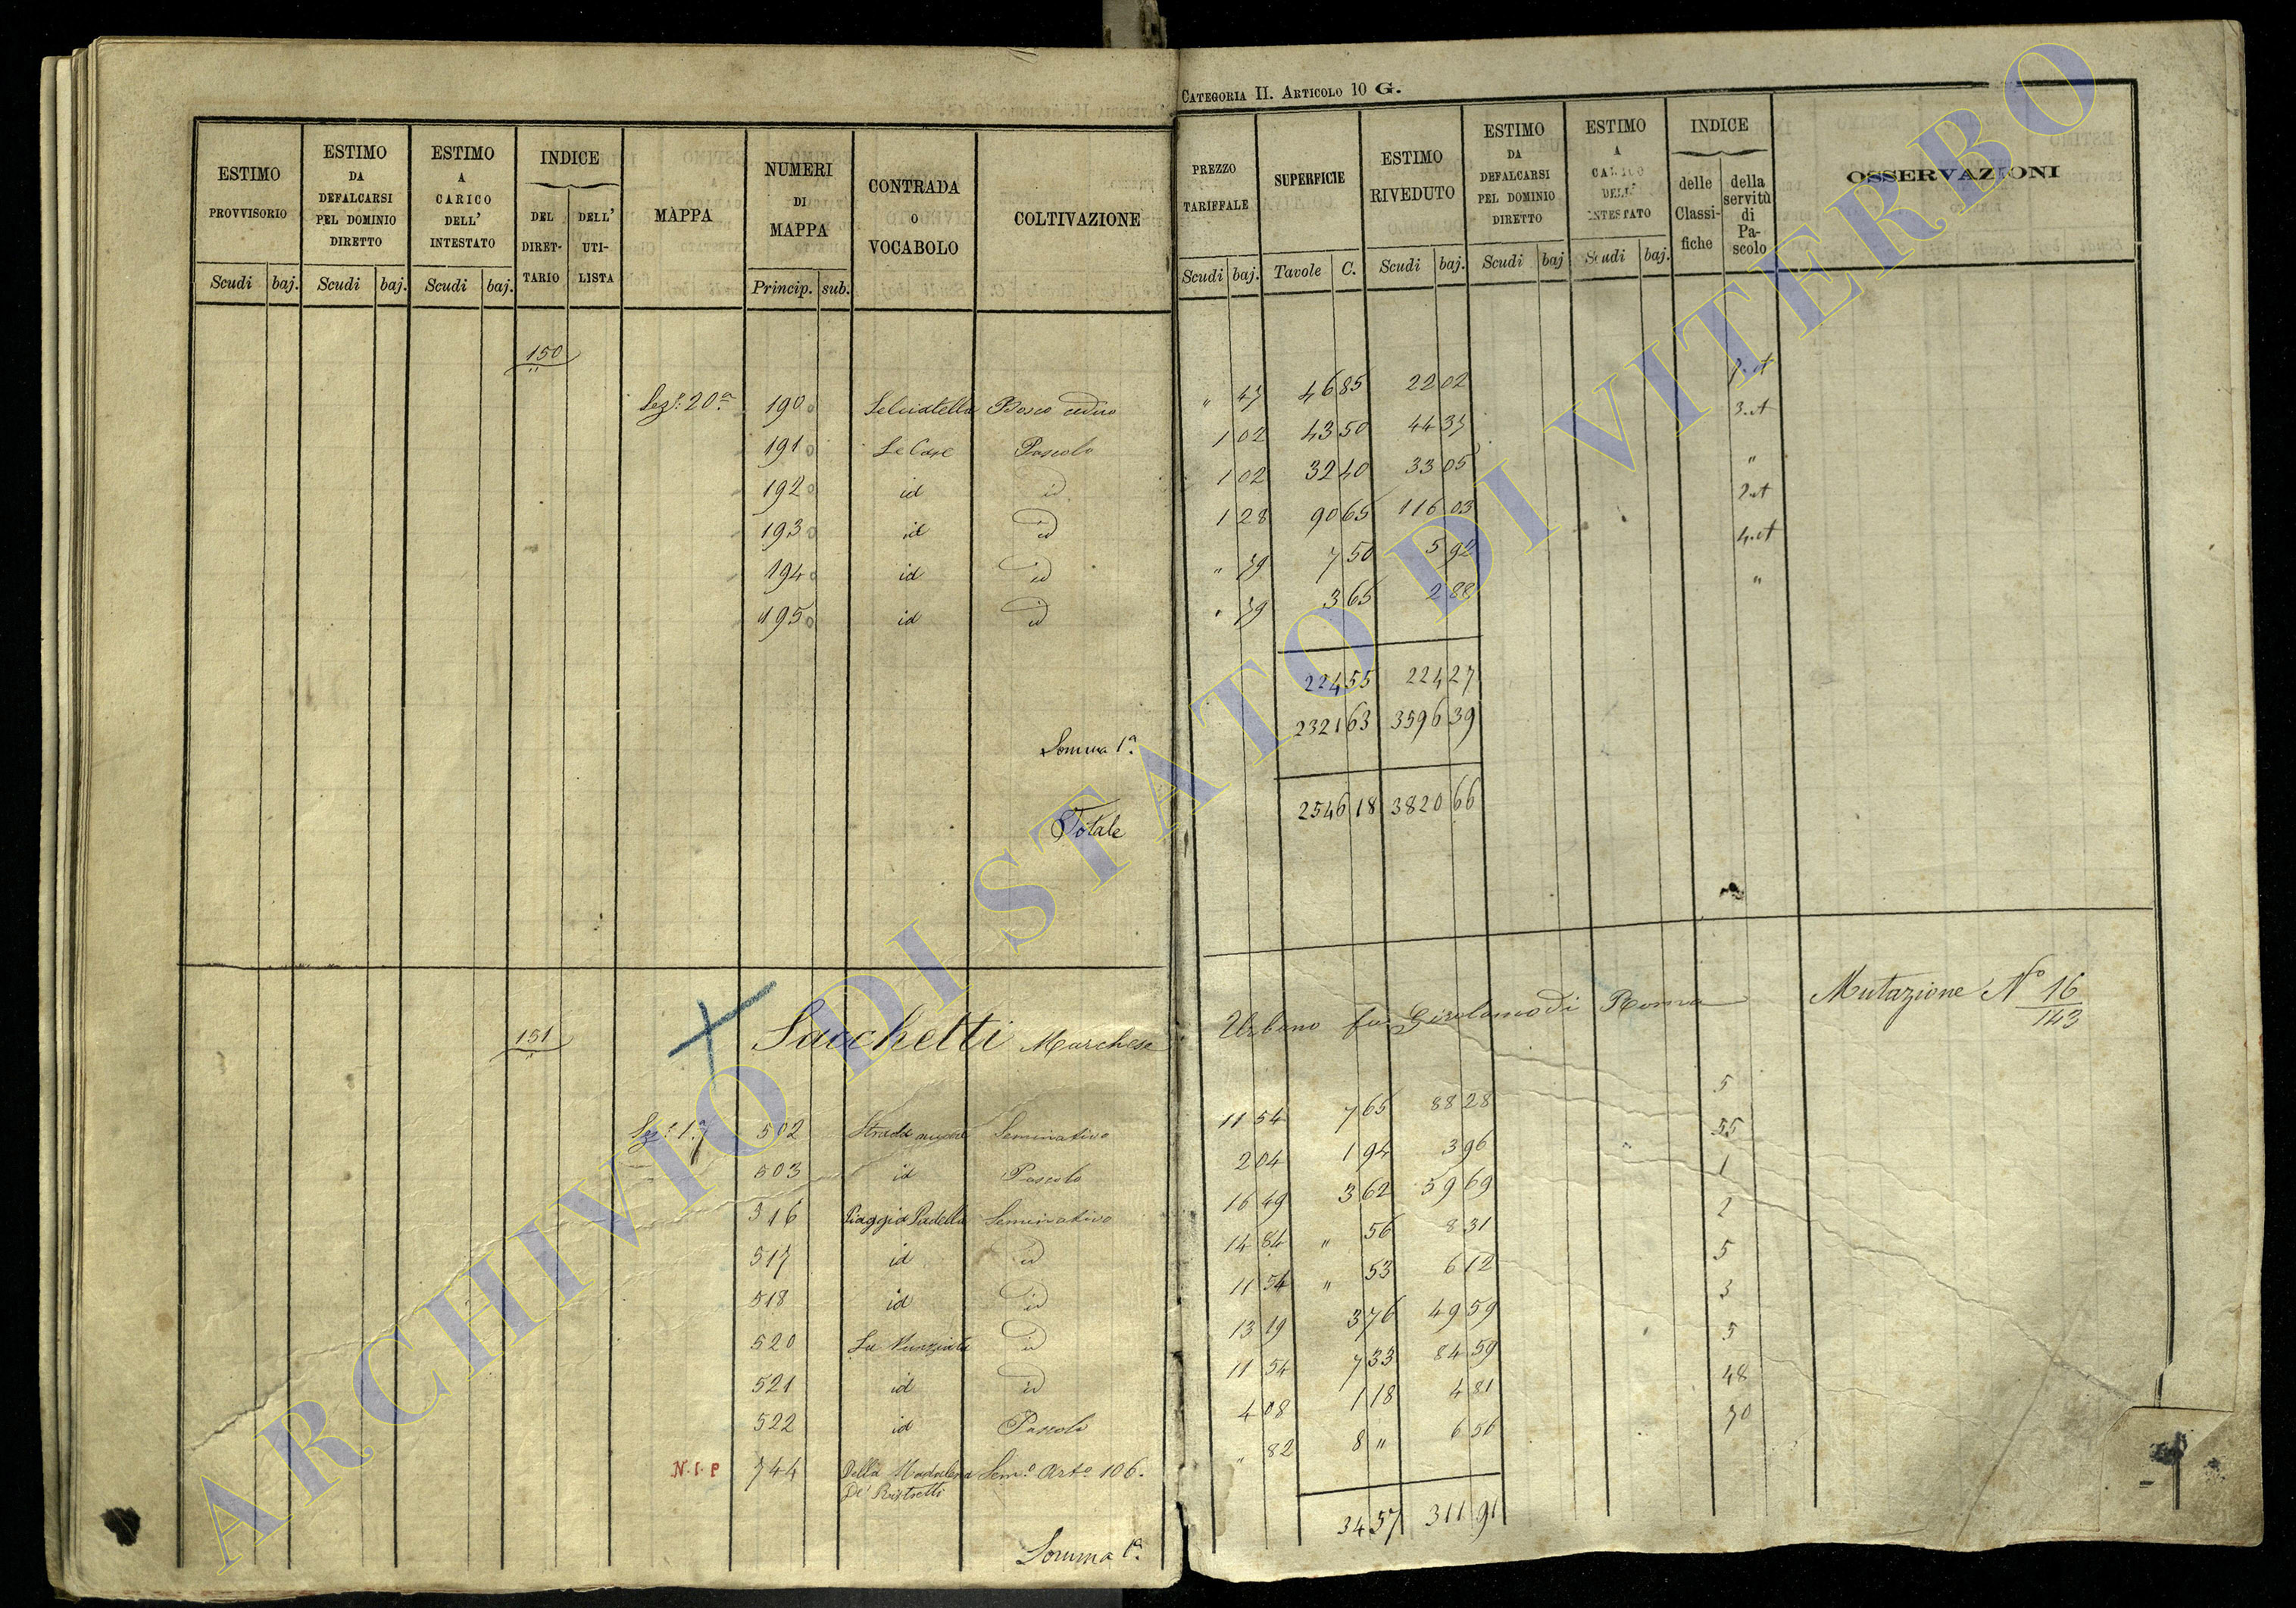 CATEGORIA II. ARTICOLO 10 G.
ESTIMO PROVVISORIO | ESTIMO DA DEFALCARSI PEL DOMINIO DIRETTO | ESTIMO A CARICO DELL' INTESTATO | INDICE DEL DIRETTARIO | DELL' UTILISTA | MAPPA | NUMERI DI MAPPA | CONTRADA O VOCABOLO | COLTIVAZIONE | PREZZO TARIFFALE | SUPERFICIE | ESTIMO RIVEDUTO | ESTIMO DA DEFALCARSI PEL DOMINIO DIRETTO | ESTIMO A CARICO DELL' INTESTATO | INDICE delle Classifiche | della servitù di Pascolo | OSSERVAZIONI
Scudi | baj. | Scudi | baj. | Scudi | baj. | Princip. | sub. | Scudi | baj. | Tavole | C. | Scudi | baj. | Scudi | baj | Scudi | baj.
150
Sez.e 20a 190 Selciatella Bosco ceduo " 47 46 85 22 02
191 Le Case Pascolo 1 02 43 50 44 37 3.A
192 id id 1 02 32 40 33 05 "
193 id id 1 28 90 65 116 03 2.A
194 id id " 79 7 50 5 92 4.A
195 id id " 79 3 65 2 88 "
224 55 224 27
Somma 1a 2321 63 3596 39
Totale 2546 18 3820 66
151 Sacchetti Marchese Urbano fu Girolamo di Roma Mutazione No 16/143
Sez.e 1a 502 Strada nuova Seminativo 11 54 7 65 88 28 5
503 id Pascolo 2 04 1 94 3 96 55
516 Piaggia Padella Seminativo 16 49 3 62 59 69 1
517 id id 14 84 " 56 8 31 2
518 id id 11 54 " 53 6 12 5
520 La Nunziata id 13 19 3 76 49 59 3
521 id id 11 54 7 33 84 59 5
522 id Pascolo 4 08 1 18 4 81 48
N.1.P 744 Della Madalena De' Ristretti Sem.o Art.o 106. " 82 8 " 6 56 70
Somma 1a 34 57 311 91
ARCHIVIO DI STATO DI VITERBO